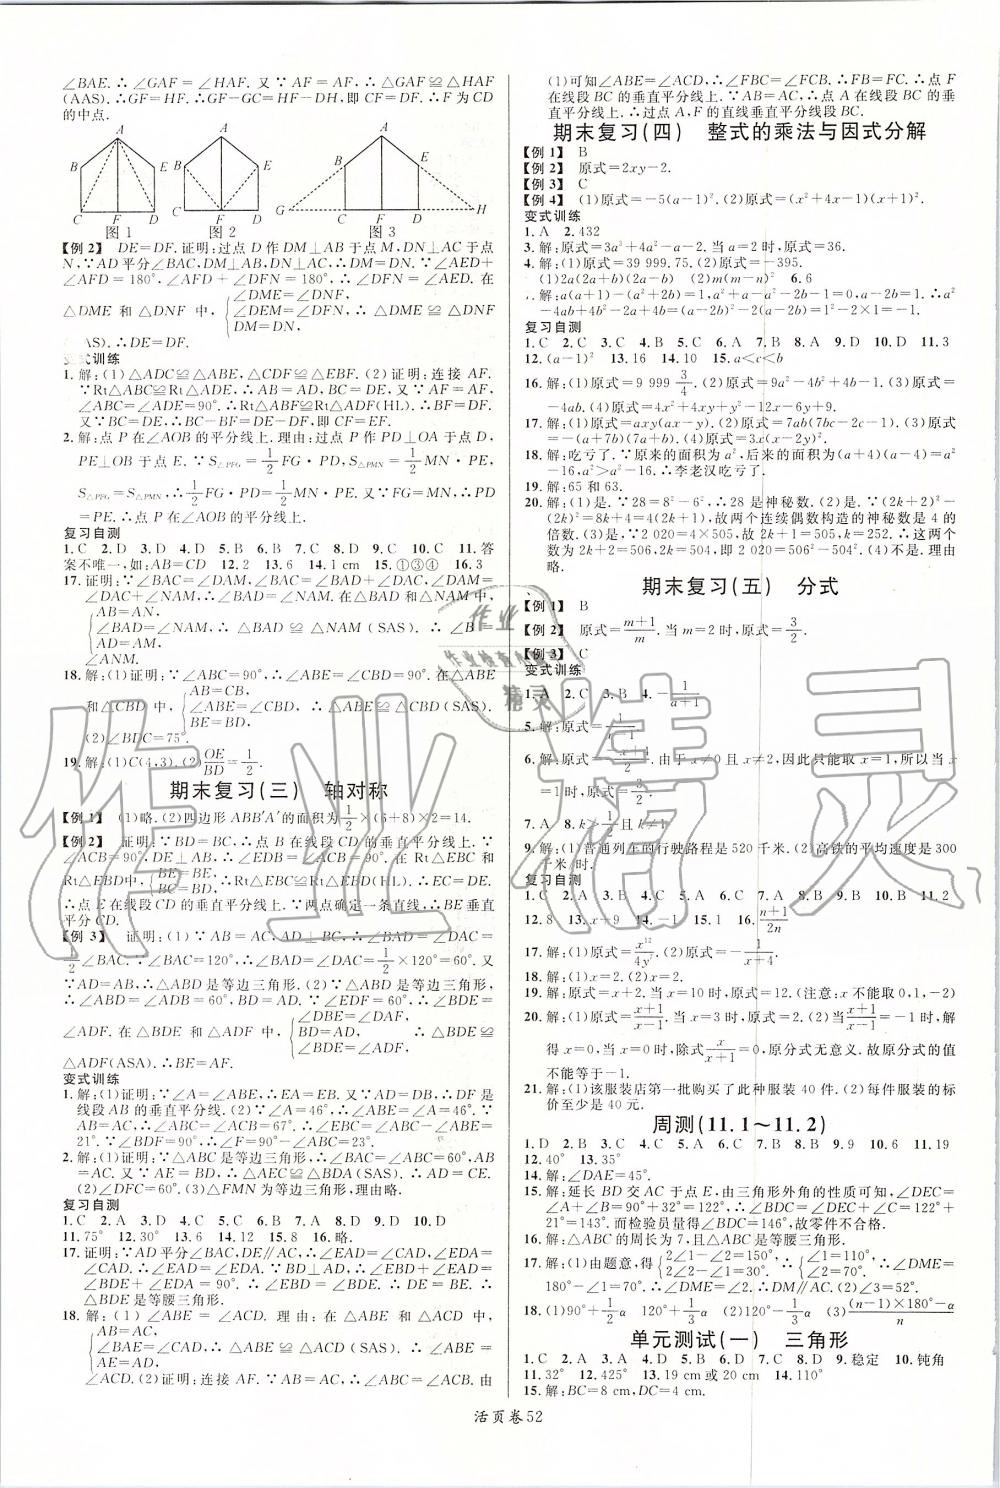 ∠BAE.∴∠GAF=∠HAF.又∵AF=AF,∴△GAF≌△HAF
(AAS).∴GF=HF.∴GF-GC=HF-DH,即CF=DF.∴F为CD
的中点.
A B E C F D 图1
A B E C F D 图2
A G C F D H 图3
【例2】 DE=DF.证明:过点D作DM⊥AB于点M,DN⊥AC于点
N,∵AD平分∠BAC,DM⊥AB,DN⊥AC,∴DM=DN.∵∠AED+
∠AFD=180°,∠AFD+∠DFN=180°,∴∠DFN=∠AED.在
△DME和△DNF中,{∠DME=∠DNF, ∠DEM=∠DFN, DM=DN, ∴△DME≌△DNF
(AAS).∴DE=DF.
变式训练
1.解:(1)△ADC≌△ABE,△CDF≌△EBF.(2)证明:连接AF.
∵Rt△ABC≌Rt△ADE,∴AB=AD,BC=DE.又∵AF=AF,
∠ABC=∠ADE=90°.∴Rt△ABF≌Rt△ADF(HL).∴BF=DF.
又∵BC=DE,∴BC-BF=DE-DF,即CF=EF.
2.解:点P在∠AOB的平分线上.理由:过点P作PD⊥OA于点D,
PE⊥OB于点E.∵S△PFG=1/2 FG·PD,S△PMN=1/2 MN·PE,
S△PFG=S△PMN,∴1/2 FG·PD=1/2 MN·PE.又∵FG=MN,∴PD
=PE.∴点P在∠AOB的平分线上.
复习自测
1.C 2.D 3.D 4.D 5.B 6.D 7.B 8.D 9.C 10.C 11.答
案不唯一,如:AC=DB 12.2 13.6 14.1 cm 15.①③④ 16.3
17.证明:∵∠BAC=∠DAM,∠BAC=∠BAD+∠DAC,∠DAM=
∠DAC+∠NAM,∴∠BAD=∠NAM.在△BAD和△NAM中,
{AB=AN, ∠BAD=∠NAM, AD=AM, ∴△BAD≌△NAM(SAS).∴∠B=
∠ANM.
18.解:(1)证明:∵∠ABC=90°,∴∠DBE=90°.在△ABE
和△CBD中,{AB=CB, ∠ABE=∠CBD, BE=BD, ∴△ABE≌△CBD(SAS).
(2)∠BDC=75°.
19.解:(1)C(4,3).(2)OE/BD=1/2.
期末复习(三) 轴对称
【例1】 (1)略.(2)四边形ABB′A′的面积为1/2×(6+8)×2=14.
【例2】 证明:∵BD=BC,∴点B在线段CD的垂直平分线上.∵
∠ACB=90°,ED⊥AB,∴∠EDB=90°.在Rt△EBC和
Rt△EBD中,{BE=BE, BC=BD, ∴Rt△EBC≌Rt△EBD(HL).∴EC=DE.
∴点E在线段CD的垂直平分线上.∵两点确定一条直线,∴BE垂直
平分CD.
【例3】 证明:(1)∵AB=AC,AD⊥BC,∴∠BAD=∠DAC=
1/2∠BAC.∵∠BAC=120°,∴∠BAD=∠DAC=1/2×120°=60°.又
∵AD=AB,∴△ABD是等边三角形.(2)∵△ABD是等边三角形,
∴∠ABD=∠ADB=60°,BD=AD.∵∠EDF=60°,∴∠BDE=
∠ADF.在△BDE和△ADF中,{∠DBE=∠DAF, BD=AD, ∠BDE=∠ADF, ∴△BDE≌
△ADF(ASA).∴BE=AF.
变式训练
1.解:(1)证明:∵∠A=∠ABE,∴EA=EB.又∵AD=DB,∴DF是
线段AB的垂直平分线.(2)∵∠A=46°,∴∠ABE=∠A=46°.∵
AB=AC,∴∠ABC=∠ACB=67°.∴∠EBC=∠ABC-∠ABE=
21°.∵∠BDF=90°,∴∠F=90°-∠ABC=23°.
2.解:(1)证明:∵△ABC是等边三角形,∴AB=AC,∠BAC=∠B=60°.
又∵AE=BD,∴△AEC≌△BDA(SAS).∴AD=CE.
(2)∠DFC=60°.(3)△FMN为等边三角形,理由略.
复习自测
1.C 2.A 3.D 4.D 5.D 6.D 7.A 8.C 9.D 10.D
11.75° 12.30° 13.6 14.12 15.8 16.略.
17.证明:∵AD平分∠BAC,DE∥AC,∴∠EAD=∠CAD,∠EDA=
∠CAD.∴∠EAD=∠EDA.∵BD⊥AD,∴∠EBD+∠EAD=
∠BDE+∠EDA=90°.∴∠EBD=∠BDE.∴DE=BE.∴
△BDE是等腰三角形.
18.解:(1)∠ABE=∠ACD.理由:在△ABE和△ACD中,
{AB=AC, ∠BAE=∠CAD, AE=AD, ∴△ABE≌△ACD(SAS).∴∠ABE=
∠ACD.(2)证明:连接AF.∵AB=AC,∴∠ABC=∠ACB.由
(1)可知∠ABE=∠ACD,∴∠FBC=∠FCB.∴FB=FC.∴点F
在线段BC的垂直平分线上.∵AB=AC,∴点A在线段BC的垂
直平分线上.∴过点A、F的直线垂直平分线段BC.
期末复习(四) 整式的乘法与因式分解
【例1】 B
【例2】 原式=2xy-2.
【例3】 C
【例4】 (1)原式=-5(a-1)².(2)原式=(x²+4x-1)(x²-4x-1).
变式训练
1.A 2.432
3.解:原式=3a²+4a-3a²+3=4a+3.当a=2时,原式=36.
4.解:(1)原式=39 999.75.(2)原式=-395.
5.(1)2a(2a+b)(2a-b) (2)m(m-n)² 6.6
7.解:a(a+1)-(a²+2b)=1,a²+a-a²-2b-1=0,a-2b=1.∴a²
-4ab+4b²-2a+4b=(a-2b)²-2(a-2b)=1²-2×1=-1.
复习自测
1.C 2.D 3.D 4.D 5.C 6.C 7.A 8.B 9.A 10.D 11.3
12.(a-1)² 13.16 14.10 15.a<c<b
16.解:(1)原式=9 999 3/4.(2)原式=9a²-4b²+4b-1.(3)原式=
-4ab.(4)原式=4x²+4xy+y²-12x-6y+9.
17.解:(1)原式=axy(ax-y).(2)原式=7ab(7bc-2c-1).(3)原式
17.解:(1)原式=axy(ax-y).(2)原式=7ab(7bc-2c-1).
18.解:吃亏了.∵原来的面积为a²,后来的面积为(a+4)(a-4)=a²
-16,a²>a²-16.∴李老汉吃亏了.
19.解:65和63.
20.解:(1)是.∵28=8²-6²,∴28是神秘数.(2)是.∵(2k+2)²-
(2k)²=8k+4=4(2k+1),故两个连续偶数构造的神秘数是4的
倍数.(3)∵2 020=4×505,故2 020是4的倍数.∴这两个
数为2k+2=506,2k=504,即2 020=506²-504².(4)不是.理由
略.
期末复习(五) 分式
【例1】 B
【例2】 原式=(m+1)/m.当m=2时,原式=3/2.
【例3】 C
变式训练
1.A 2.C 3.B 4.-1/(a+1)
7.A 8.k>1/2且k≠1
9.解:(1)普通列车的行驶路程是520千米.(2)高铁的平均速度是300
千米/时.
复习自测
1.C 2.A 3.B 4.C 5.A 6.C 7.A 8.B 9.B 10.B 11.2
12.8 13.x≠9 14.-1 15.1 16.(n+1)/2n
18.解:(1)x=2.(2)x=2.
19.解:原式=x+2.当x=10时,原式=12.(注意:x不能取0,1,-2)
20.解:(1)原式=(x+1)/(x-1).当x=3时,原式=2.(2)当(x+1)/(x-1)=-1时,解
得x=0,当x=0时,除式x/(x+1)=0,原分式无意义.故原分式的值
不能等于-1.
21.解:(1)该服装店第一批购买了此种服装40件.(2)每件服装的标
价至少是40元.
周测(11.1~11.2)
1.D 2.B 3.C 4.D 5.A 6.A 7.D 8.B 9.9 10.6 11.19
12.40° 13.35°
14.解:∠DAE=45°.
15.解:延长BD交AC于点E,由三角形外角的性质可知,∠DEC=
∠A+∠B=90°+32°=122°,∠BDC=∠DEC+∠C=122°+
21°=143°.而检验员量得∠BDC=146°,故零件不合格.
16.解:△ABC的周长为7,且△ABC是等腰三角形.
17.解:(1)由题意,得{2∠2-∠1=150°, 2∠2-2∠1=30°, 解得{∠1=110°, ∠DME=
180°-∠1=70°.∴∠DME=∠2.∴DM∥AC.(2)∠3=52°.
18.(1)90°+1/2α 120°+1/3α (2)120°-1/3α (3)((n-1)×180°-α)/n
单元测试(一) 三角形
1.C 2.A 3.A 4.B 5.A 6.D 7.B 8.C 9.稳定 10.钝角
11.32° 12.425° 13.18 cm或20 cm 14.110°
15.解:BC=8 cm,DC=4 cm.
活页卷52
作业精灵